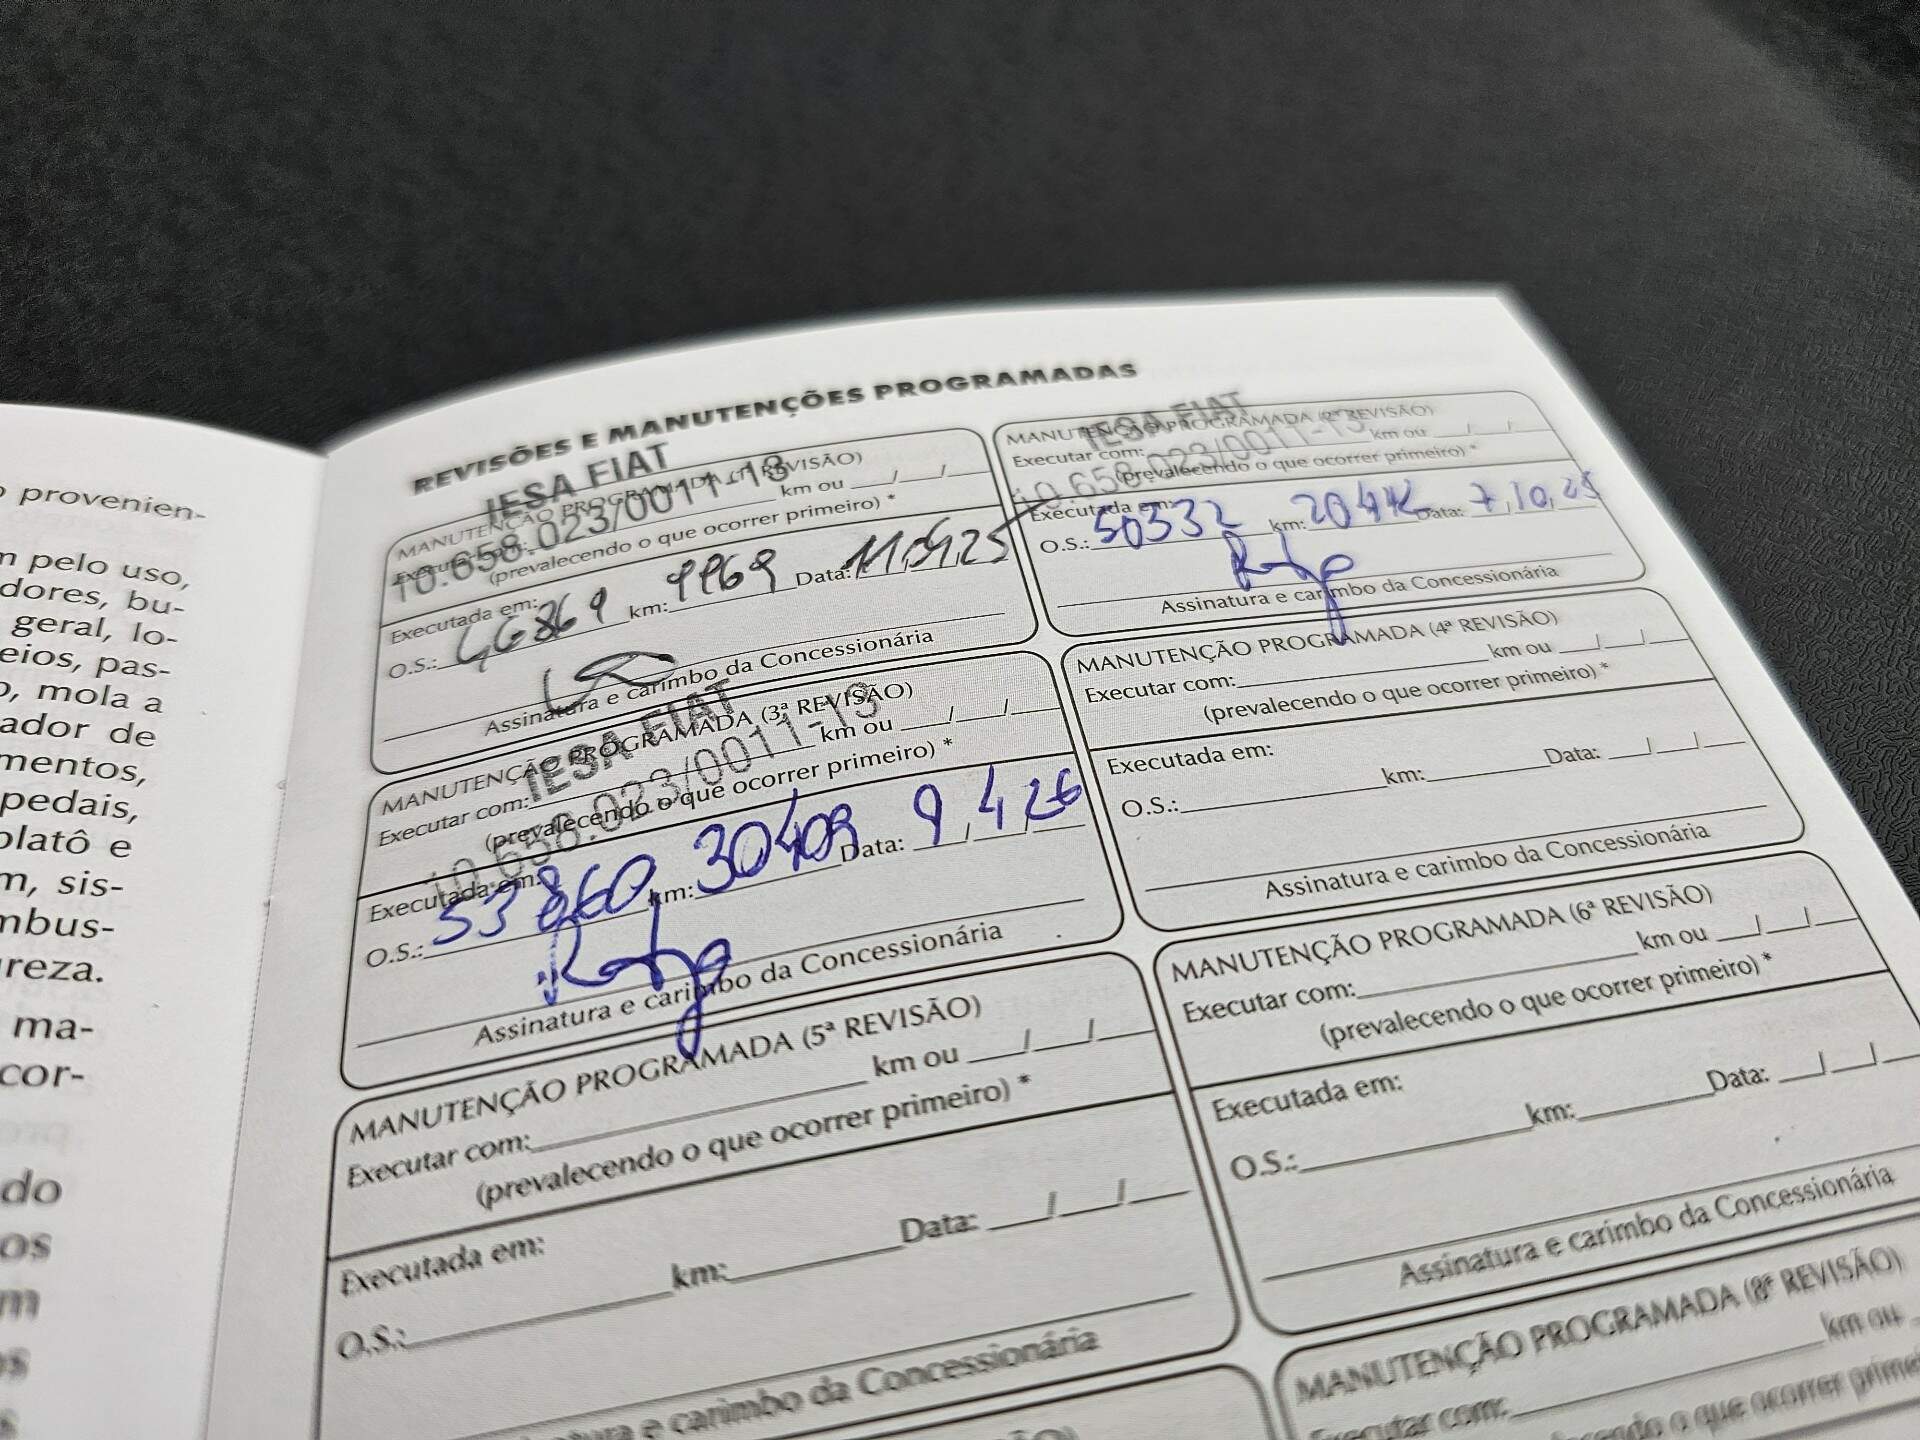 provenien-
pelo uso,
dores, bu-
geral, lo-
eios, pas-
mola a
ador de
mentos,
pedais,
platô e
sis-
mbus-
reza.
ma-
cor-
do
os
REVISÕES E MANUTENÇÕES PROGRAMADAS
IESA FIAT
10.658.023/0011-13
MANUTENÇÃO PROGRAMADA (1ª REVISÃO)
Executar com: km ou / /
(prevalecendo o que ocorrer primeiro) *
Executada em:
O.S.: 46869 km: 9969 Data:
Assinatura e carimbo da Concessionária
IESA FIAT
10.658.023/0011-13
MANUTENÇÃO PROGRAMADA (2ª REVISÃO)
Executar com: km ou / /
(prevalecendo o que ocorrer primeiro) *
Executada em:
O.S.: 50332 km: Data: 7/10/25
Assinatura e carimbo da Concessionária
IESA FIAT
10.658.023/0011-13
MANUTENÇÃO PROGRAMADA (3ª REVISÃO)
Executar com: km ou / /
(prevalecendo o que ocorrer primeiro) *
Executada em:
O.S.: 53860 km: 30409 Data: 9/4/26
Assinatura e carimbo da Concessionária
MANUTENÇÃO PROGRAMADA (4ª REVISÃO)
Executar com: km ou / /
(prevalecendo o que ocorrer primeiro) *
Executada em:
O.S.: km: Data: / /
Assinatura e carimbo da Concessionária
MANUTENÇÃO PROGRAMADA (5ª REVISÃO)
Executar com: km ou / /
(prevalecendo o que ocorrer primeiro) *
Executada em:
O.S.: km: Data: / /
Assinatura e carimbo da Concessionária
MANUTENÇÃO PROGRAMADA (6ª REVISÃO)
Executar com: km ou / /
(prevalecendo o que ocorrer primeiro) *
Executada em:
O.S.: km: Data: / /
Assinatura e carimbo da Concessionária
MANUTENÇÃO PROGRAMADA (8ª REVISÃO)
Executar com: km ou
o que ocorrer